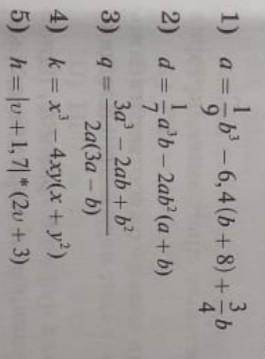 1) a = 1/9 b³ − 6,4(b + 8) + 3/4 b
2) d = 1/7 a³b − 2ab²(a + b)
3) q = (3a³ − 2ab + b²)/(2a(3a − b))
4) k = x³ − 4xy(x + y²)
5) h = |v + 1,7| * (2v + 3)